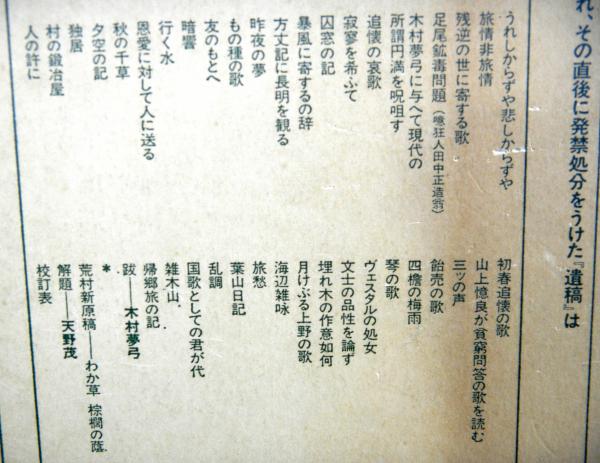 れ、その直後に発禁処分をうけた『遺稿』は
うれしからずや悲しからずや
旅情非旅情
残逆の世に寄する歌
足尾鉱毒問題(噫狂人田中正造翁)
木村夢弓に与へて現代の
所謂円満を呪咀す
追懐の哀歌
寂寥を希ふて
囚窓の記
暴風に寄するの辞
方丈記に長明を観る
昨夜の夢
もの種の歌
友のもとへ
暗響
行く水
恩愛に対して人に送る
秋の千草
夕空の記
独居
村の鍛冶屋
人の許に
初春追懐の歌
山上憶良が貧窮問答の歌を読む
三ッの声
飴売の歌
四檐の梅雨
琴の歌
ヴェスタルの処女
文士の品性を論ず
埋れ木の作意如何
月けぶる上野の歌
海辺雑咏
旅愁
葉山日記
乱調
国歌としての君が代
雑木山
帰郷旅の記
跋——木村夢弓
*
荒村新原稿——わか草 棕櫚の蔭
解題——天野茂
校訂表